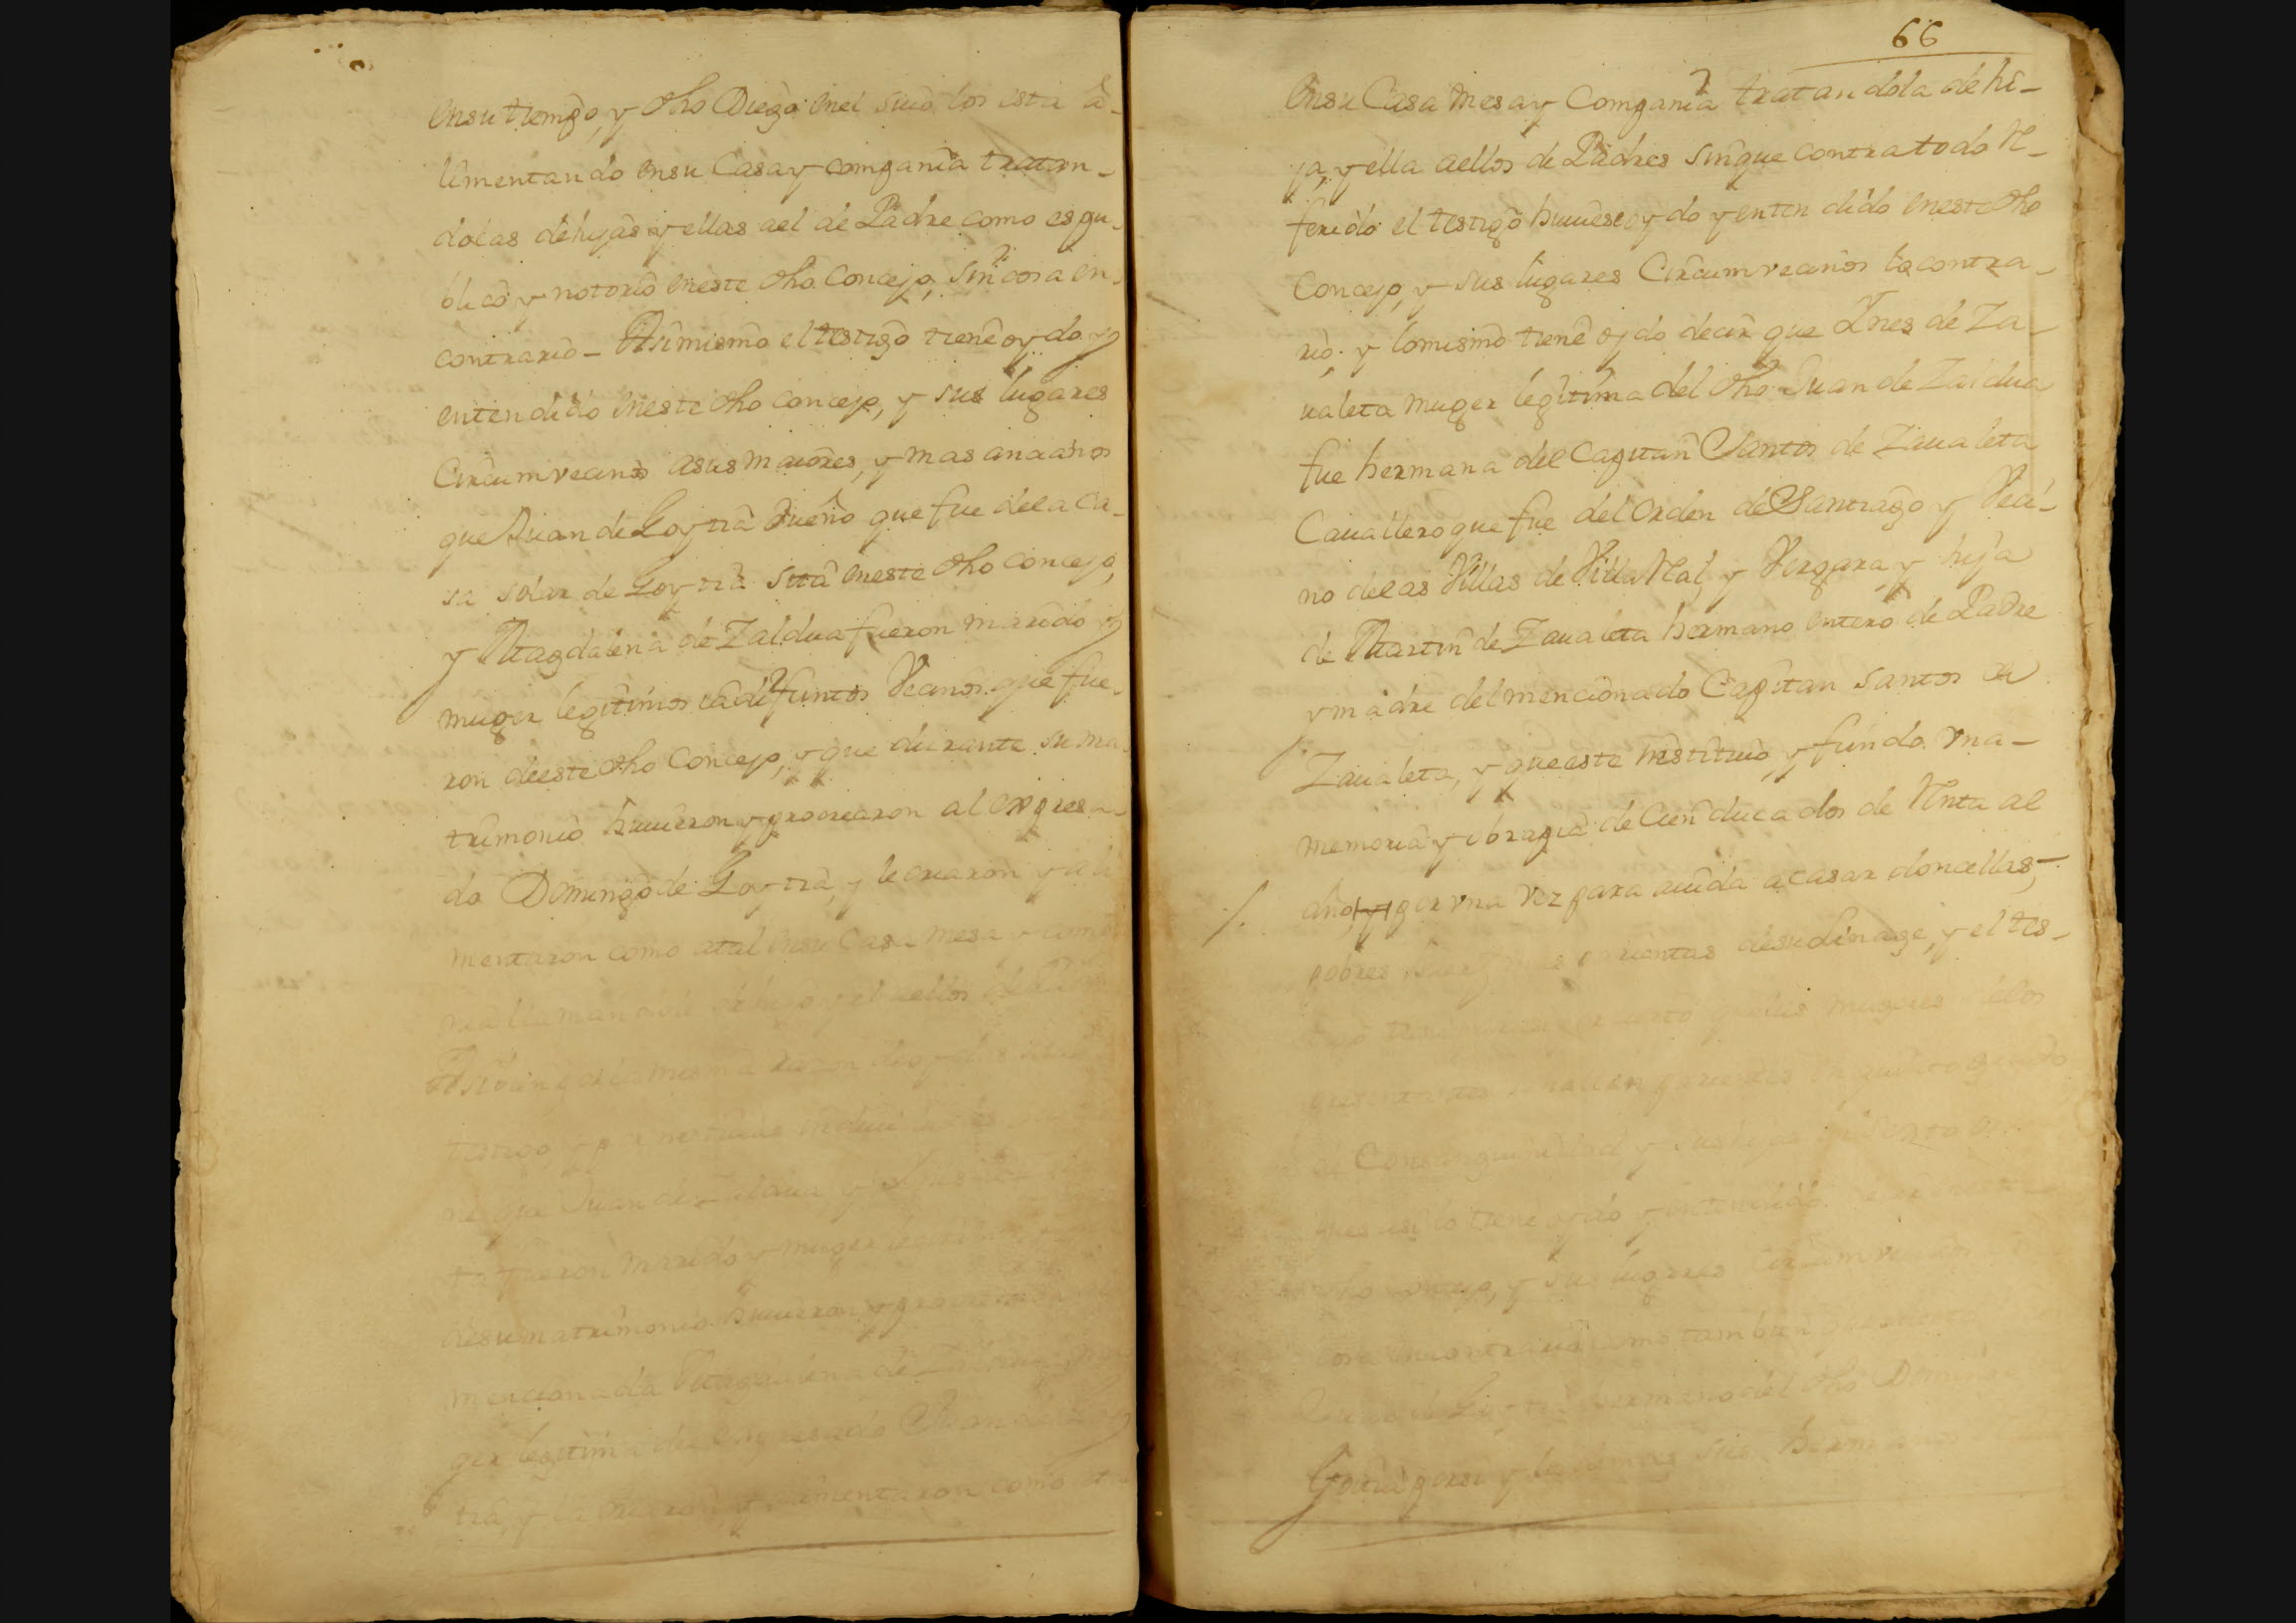 en su tiempo, y dho Diego en el suio, los esta a-
limentando en su Casa y compania tratan-
dolas de hijas y ellas a el de Padre como es pu-
blico y notorio en este dho Concejo, sin cosa en
contrario - Asimismo el testigo tiene oydo y
entendido en este dho concejo, y sus lugares
Circumvecinos a sus maiores, y mas ancianos
que Juan de Goytia Dueño que fue de la ca-
sa solar de Goytia sita en este dho concejo,
y Magdalena de Zaldua fueron marido y
muger legitimos ia difuntos Vecinos que fue-
ron de este dho Concejo, y que durante su ma-
trimonio huuieron y procrearon al expresa-
do Domingo de Goytia, y le criaron y ali
mentaron como a tal en su Casa mesa y com
nia llamandole de hijo y el a ellos de
Asi bien por la misma razon
testigo
ne que Juan de Zaldua, y Ynes de
ta fueron marido y muger legitimos
de su matrimonio huuieron y procrearon
mencionada Magdalena de Zaldua mu
ger legitima del expresado Juan de Goy
tia, y la criaron y alimentaron como a
66
en su Casa mesa y Compania tratandola de hi-
ja, y ella a ellos de Padres sin que contra todo lo Re-
ferido el testigo huuiese oydo y entendido en este dho
Concejo, y sus lugares Circumvecinos lo contra-
rio; y lo mismo tiene oydo decir que Ynes de Za-
ualeta muger legitima del dho Juan de Zaldua
fue hermana del Capitan Santos de Zaualeta
Cauallero que fue del Orden de Santiago y Veci-
no de las Villas de Villa Real, y Vergara, y hija
de Martin de Zaualeta hermano entero de Padre
y madre del mencionado Capitan Santos de
Zaualeta, y que este instituio, y fundo vna-
memoria y obra pia de Cien ducados de Renta al
año, por vna vez para aiuda a casar doncellas,-
pobres parientas de su Linage, y el tes-
tigo tiene por cierto que las mugeres de los
presentantes se hallan parientas en quinto grado
de Consanguinidad y sus hijas en sexto
pues asi lo tiene oydo y entendido en este
dho concejo, y sus lugares Circumvecinos
cosa en contrario como tambien que
de Goytia hermano del dho Domingo
Goitia por si y los demas sus hermanos